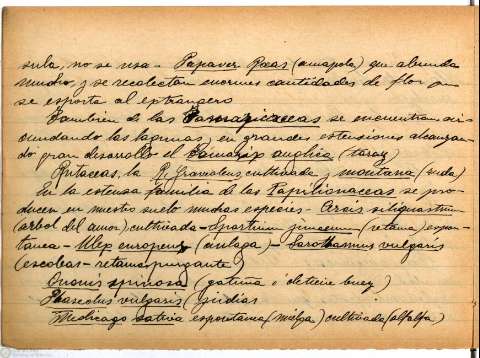 sula, no se usa - Papaver Roeas (amapola) que abunda
mucho y se recolectan enormes cantidades de flor que
se esporta al extrangero
Tambien de las Tamaricaceas se encuentran cir
cundando las lagunas, en grandes estensiones alcanzan
do gran desarrollo el Tamarix anglica (taray)
Rutaceas, la R. Graveolens, cultivada y montana (ruda)
En la estensa familia de las Papilionaceas se pro-
ducen en nuestro suelo muchas especies - Cercis siliquastrum
(arbol del amor) cultivada - Spartium junceum - (retama) espon-
tanea - Ulex europeus (aulaga) - Sarothamnus vulgaris
(escobas - retama purgante)
Ononis spinosa (gatuña ó detiene buey)
Phaseolus vulgaris (judias)
Medicago sativa espontanea (mielga) cultivada (alfalfa)